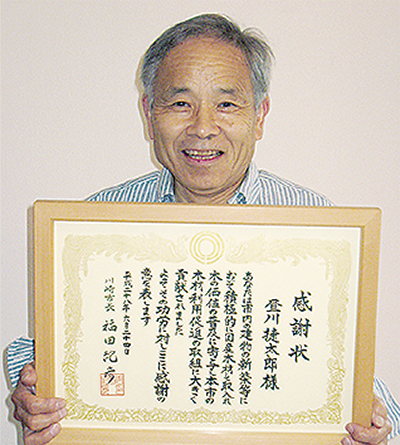 感謝状
登川捷太郎様
あなたは市内の建物の新築等に
おいて積極的に国産木材を取入れ
木の価値の普及に寄与し本市の
木材利用促進の取組に大きく
貢献されました
よってその功労に対しここに感謝の
意を表します
平成二十八年十月二十四日
川崎市長 福田紀彦